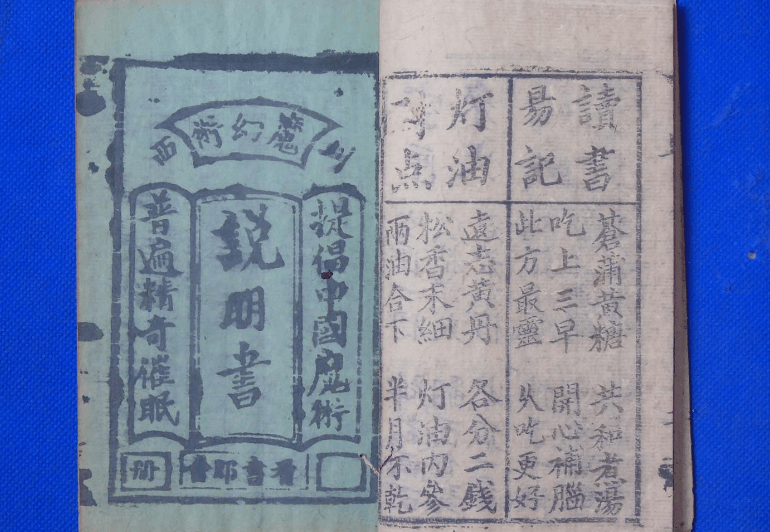 讀書
易記
蒼蒲黃糖 共和煮湯
吃上三早 開心補腦
此方最靈 久吃更好
灯油
点
遠志黃丹 各分二錢
松香末細 灯油內參
兩油合下 半月不乾
川西
魔幻術
提倡中國魔術
説明書
普遍精奇催眠
看書即會
册